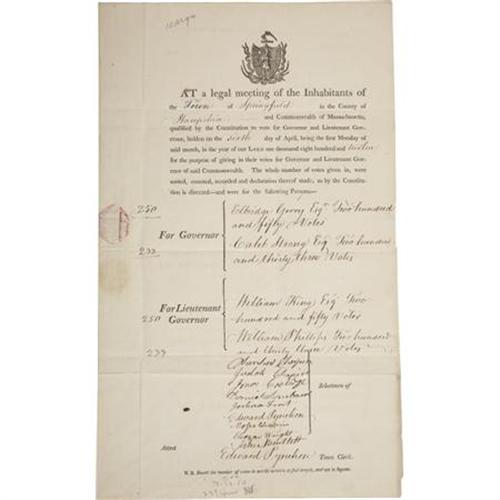 AT a legal meeting of the Inhabitants of
the Town of Springfield in the County of
Hampshire and Commonwealth of Massachusetts,
qualified by the Constitution to vote for Governor and Lieutenant Gov-
ernor, holden on the sixth day of April, being the first Monday of
said month, in the year of our LORD one thousand eight hundred and twelve
for the purpose of giving in their votes for Governor and Lieutenant Gov-
ernor of said Commonwealth. The whole number of votes given in, were
sorted, counted, recorded and declaration thereof made, as by the Constitu-
tion is directed—and were for the following Persons—
250
Elbridge Gerry Esqr Two hundred
and fifty Votes
For Governor
Caleb Strong Esq Two hundred
233
and thirty three Votes
For Lieutenant
Governor
William King Esq Two
250
hundred and fifty Votes
William Phillips Two hundred
233
and thirty three Votes
Selectmen of
Joshua Frost
Edward Pynchon
Moses Chapin
Wright
Bartlett
Attest
Edward Pynchon Town Clerk.
N. B. Insert the number of votes in words written at full length, and not in figures.